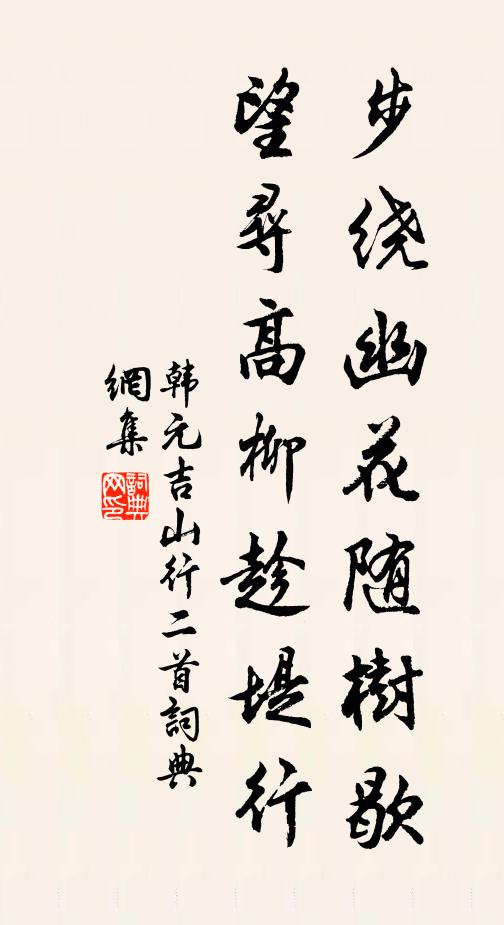 步绕幽花随樹歇
望尋高柳趁堤行
韩元吉山行二首詞典
網集
詞典
网印